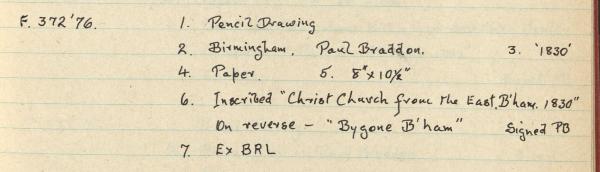 F. 372'76. 1. Pencil Drawing
2. Birmingham. Paul Braddon. 3. '1830'
4. Paper. 5. 8" x 10½"
6. Inscribed "Christ Church from the East, B'ham. 1830"
On reverse - "Bygone B'ham" Signed PB
7. Ex BRL